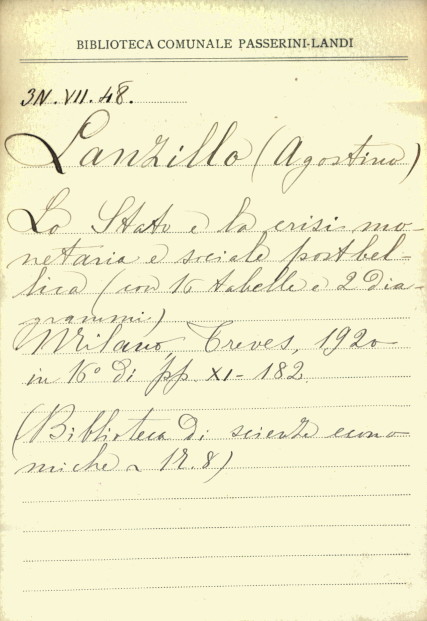 BIBLIOTECA COMUNALE PASSERINI-LANDI
3N.VII.48.
Lanzillo (Agostino)
Lo Stato e la crisi mo-
netaria e sociale postbel-
lica (con 16 tabelle e 2 dia-
grammi)
Milano, Treves, 1920
in 16° di pp XI-182
(Biblioteca di scienze econo
miche 8)